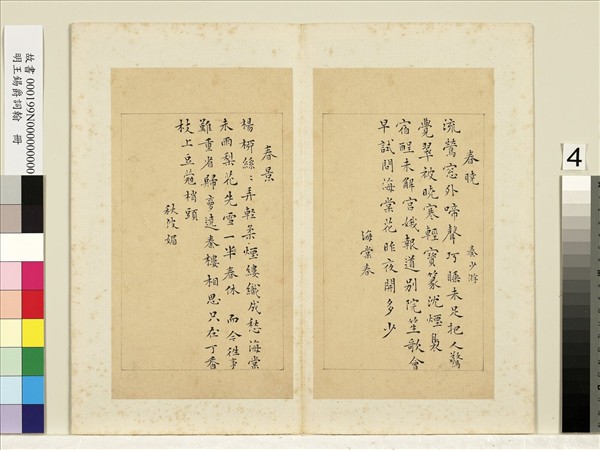 春曉 秦少游
流鶯窓外啼聲巧睡未足把人驚
覺翠被曉寒輕寶篆沈煙裊
宿酲未解宮娥報道別院笙歌會
早試問海棠花昨夜開多少
海棠春
春景
楊栁絲〻弄輕柔煙縷織成愁海棠
未雨梨花先雪一半春休 而今徃事
難重省歸夢遶秦樓相思只在丁香
枝上豆蔻梢頭
秋波媚
故書 000199N000000000
明王錫爵詞翰 冊
4